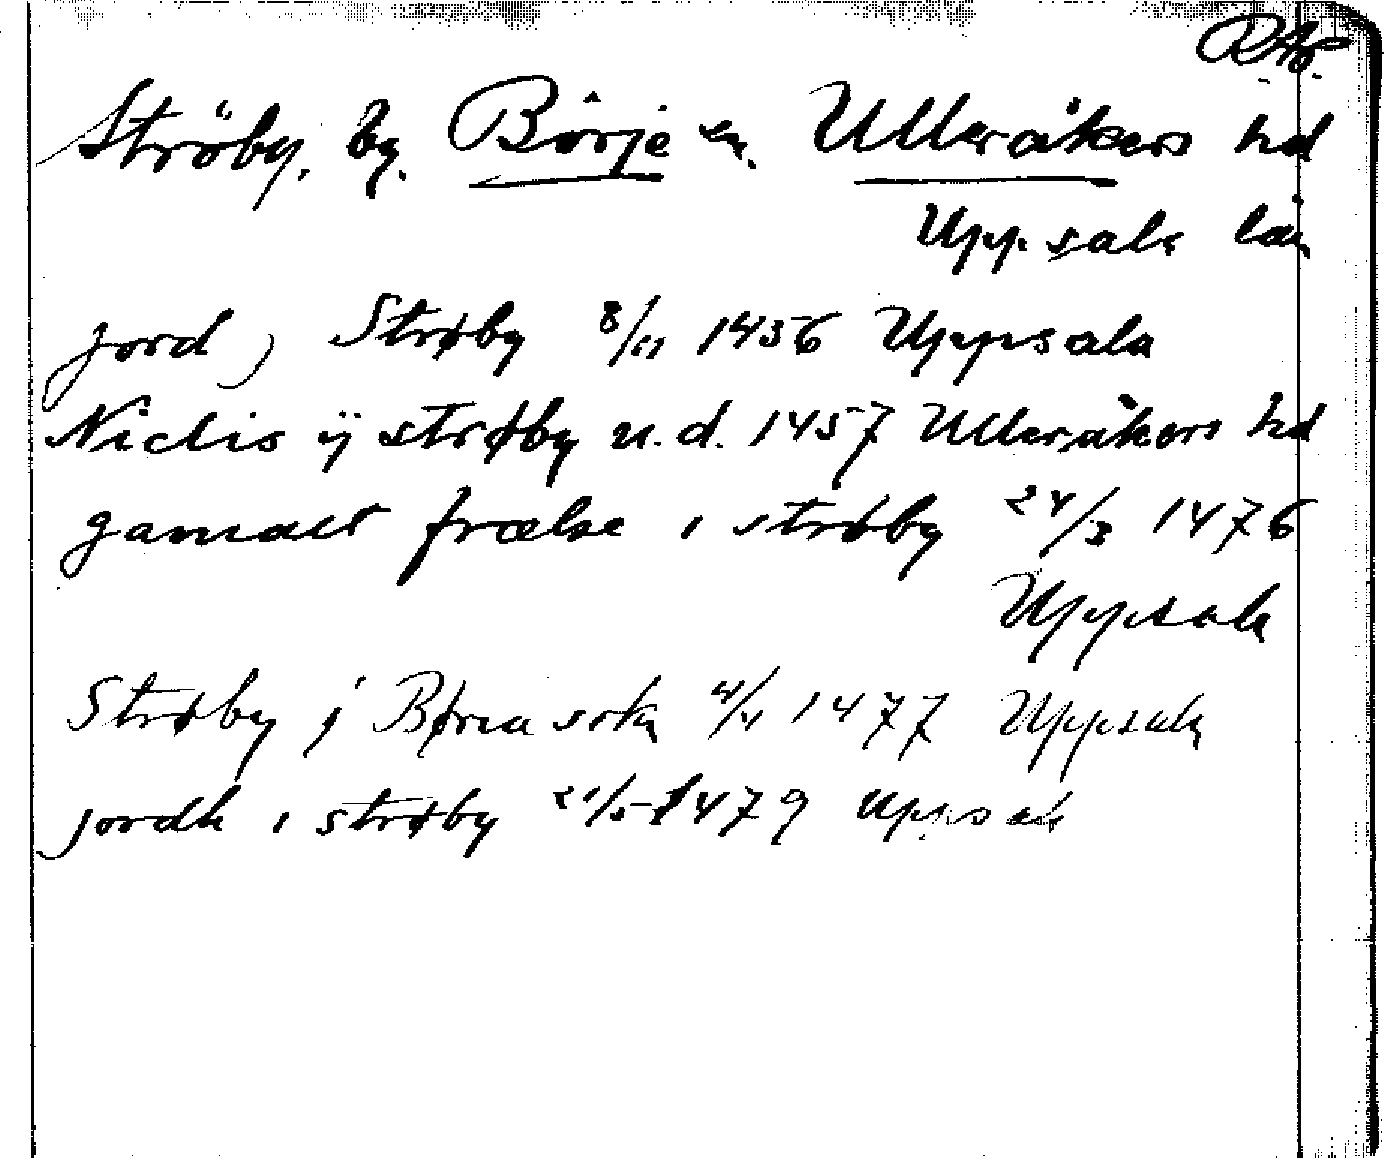 RAp.
Ströby, by. Börje sn. Ulleråkers hd
Uppsala län
jord j Strøby 8/11 1456 Uppsala
Niclis ÿ strøby u.d. 1457 Ulleråkers hd
gamalt frælse i strøby 24/3 1476
Uppsala
Strøby j Børia sokn 4/4 1477 Uppsala
jordh i strøby 21/5 1479 Uppsala